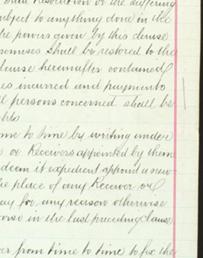 subject to anything done in the
the powers given by this clause
promises shall be restored to the
clause hereinafter contained
es incurred and payments
ll persons concerned shall be
me to time by writing under
s or Receivers appointed by them
deem it expedient appoint a new
the place of any Receiver or
ay for any reason otherwise
in the last preceding clause
ver from time to time to fix the